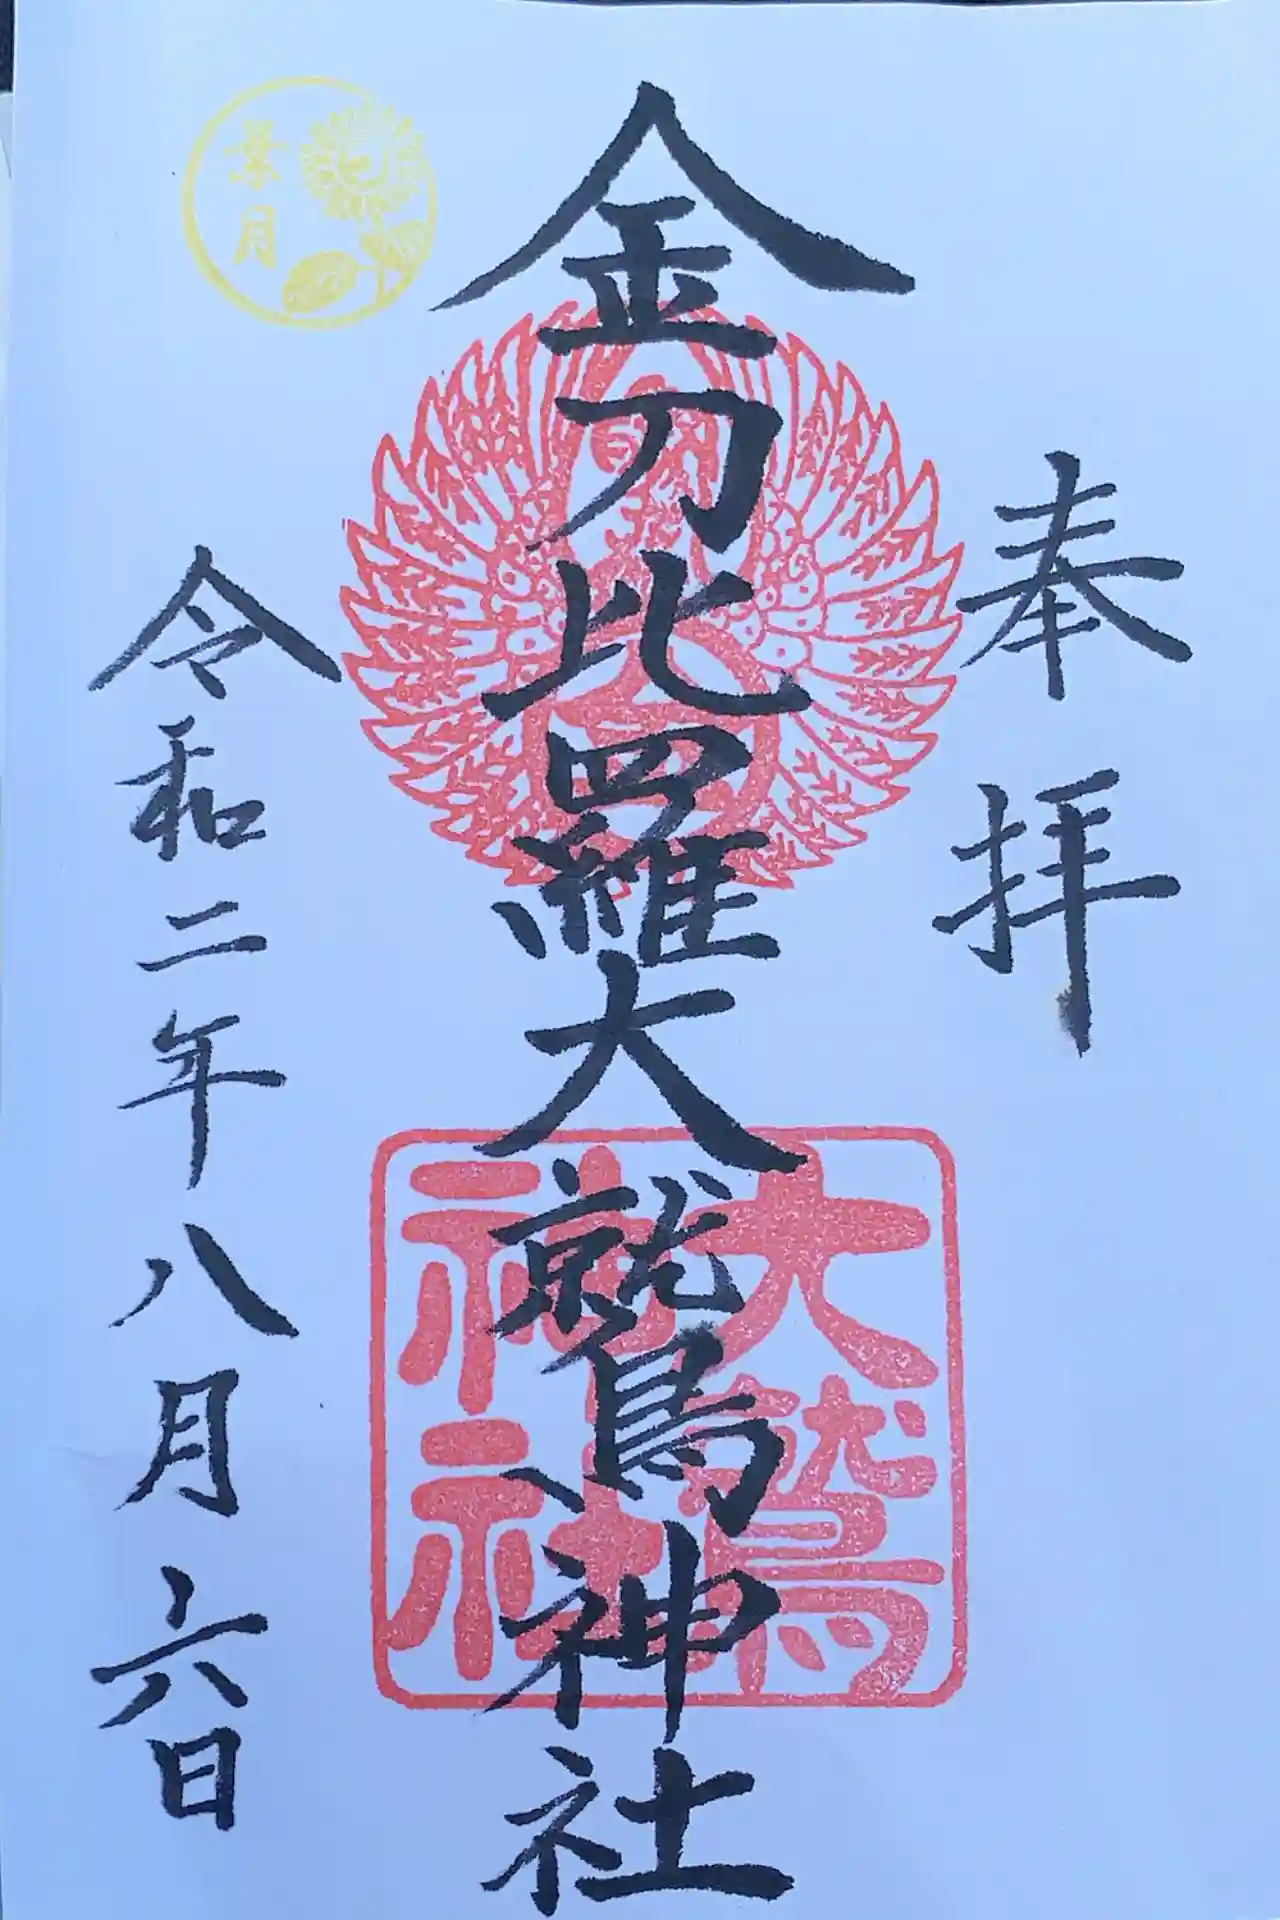 奉拝
金刀比羅大鷲神社
大鷲
神社
令和二年八月六日
葉月